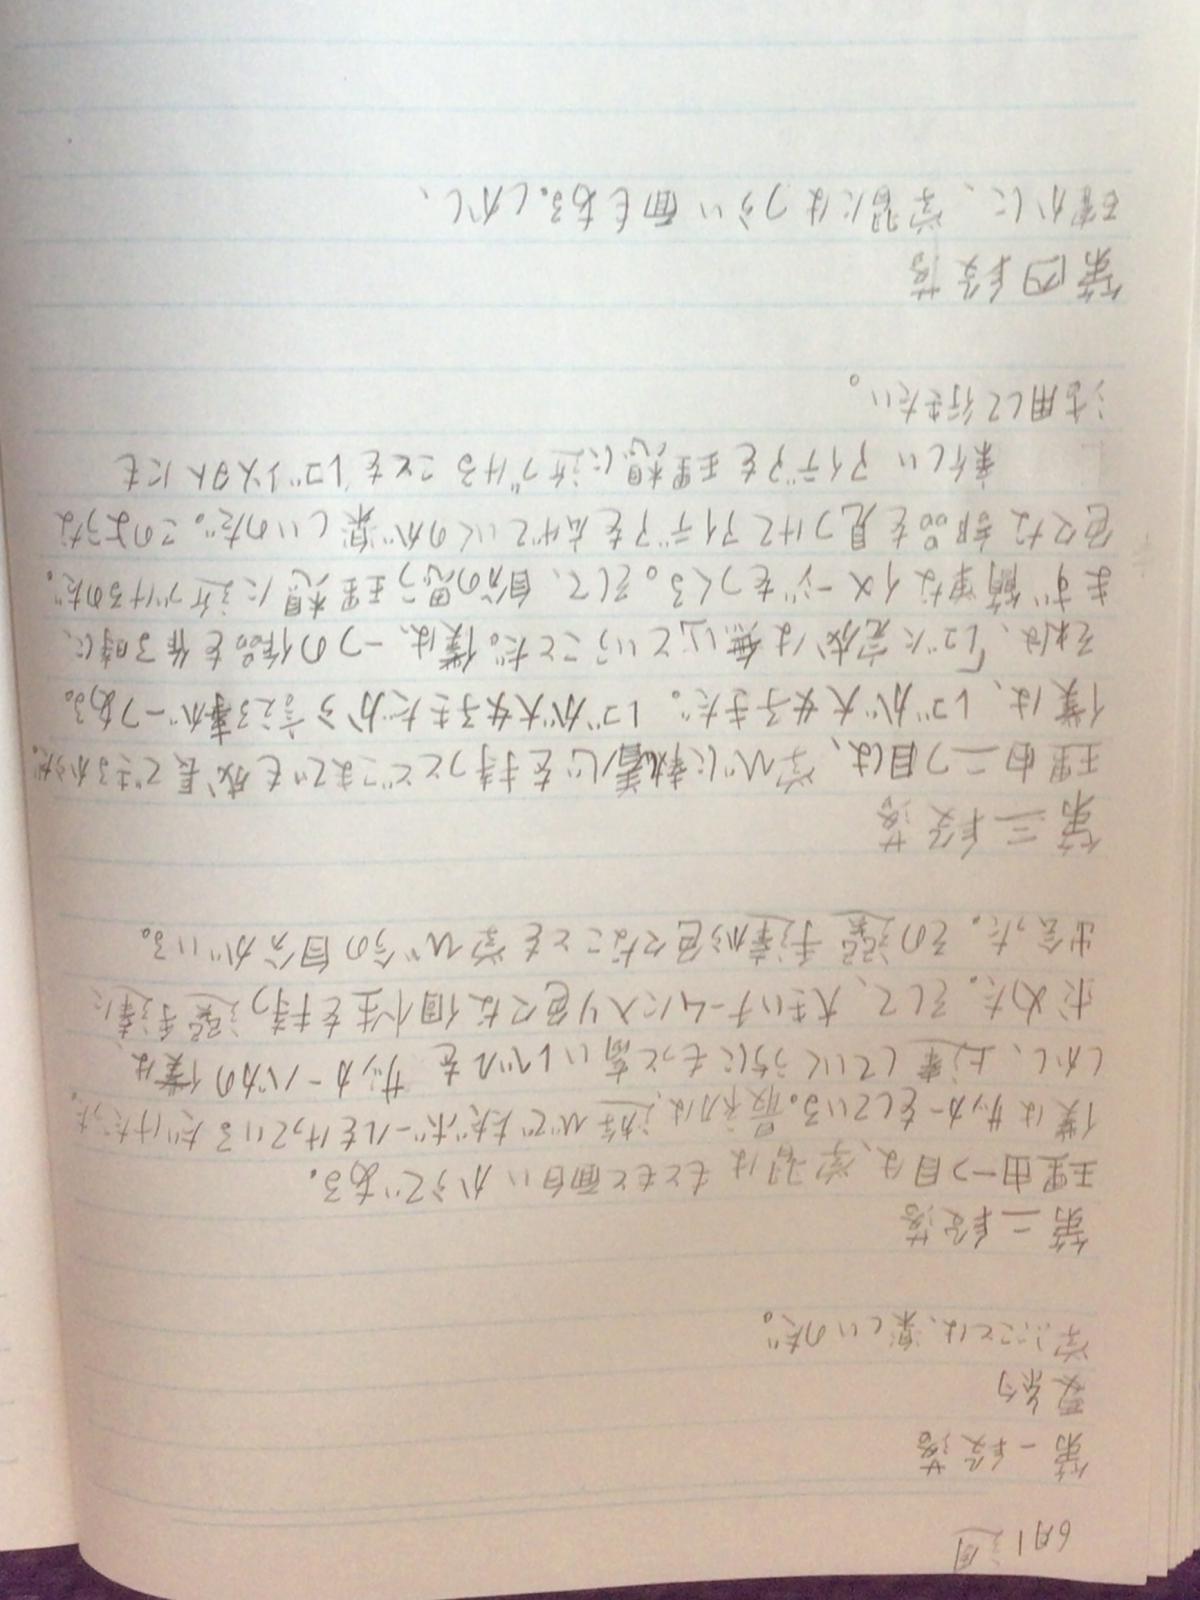 6月1週
第一段落
要約
学ぶことは、楽しいのだ。
第二段落
理由一つ目は、学習はもともと面白いからである。
僕はサッカーをしている。最初は、遊びでただボールをけっているだけだった。
しかし、上達していくうちにもっと高いレベルをサッカーバカの僕は、
求めた。そして、大きいチームに入り色々な個性を持つ選手達に
出会った。その選手達から色々なことを学び今の自分がいる。
第三段落
理由二つ目は、学びに執着心を持つとどこまでも成長できるからだ。
僕は、レゴが大好きだ。レゴが大好きだから言える事が一つある。
それは、「レゴに完成は無いということだ。僕は、一つの作品を作る時に、
まず簡単なイメージをつくる。そして、自分の思う理想に近づけるのだ。
色々な部品を見つけてアイデアを広げていくのが楽しいのだ。このような
楽しいアイデアを理想に近づけることをレゴ以外にも
活用して行きたい。
第四段落
確かに、学習にはつらい面もある。しかし、